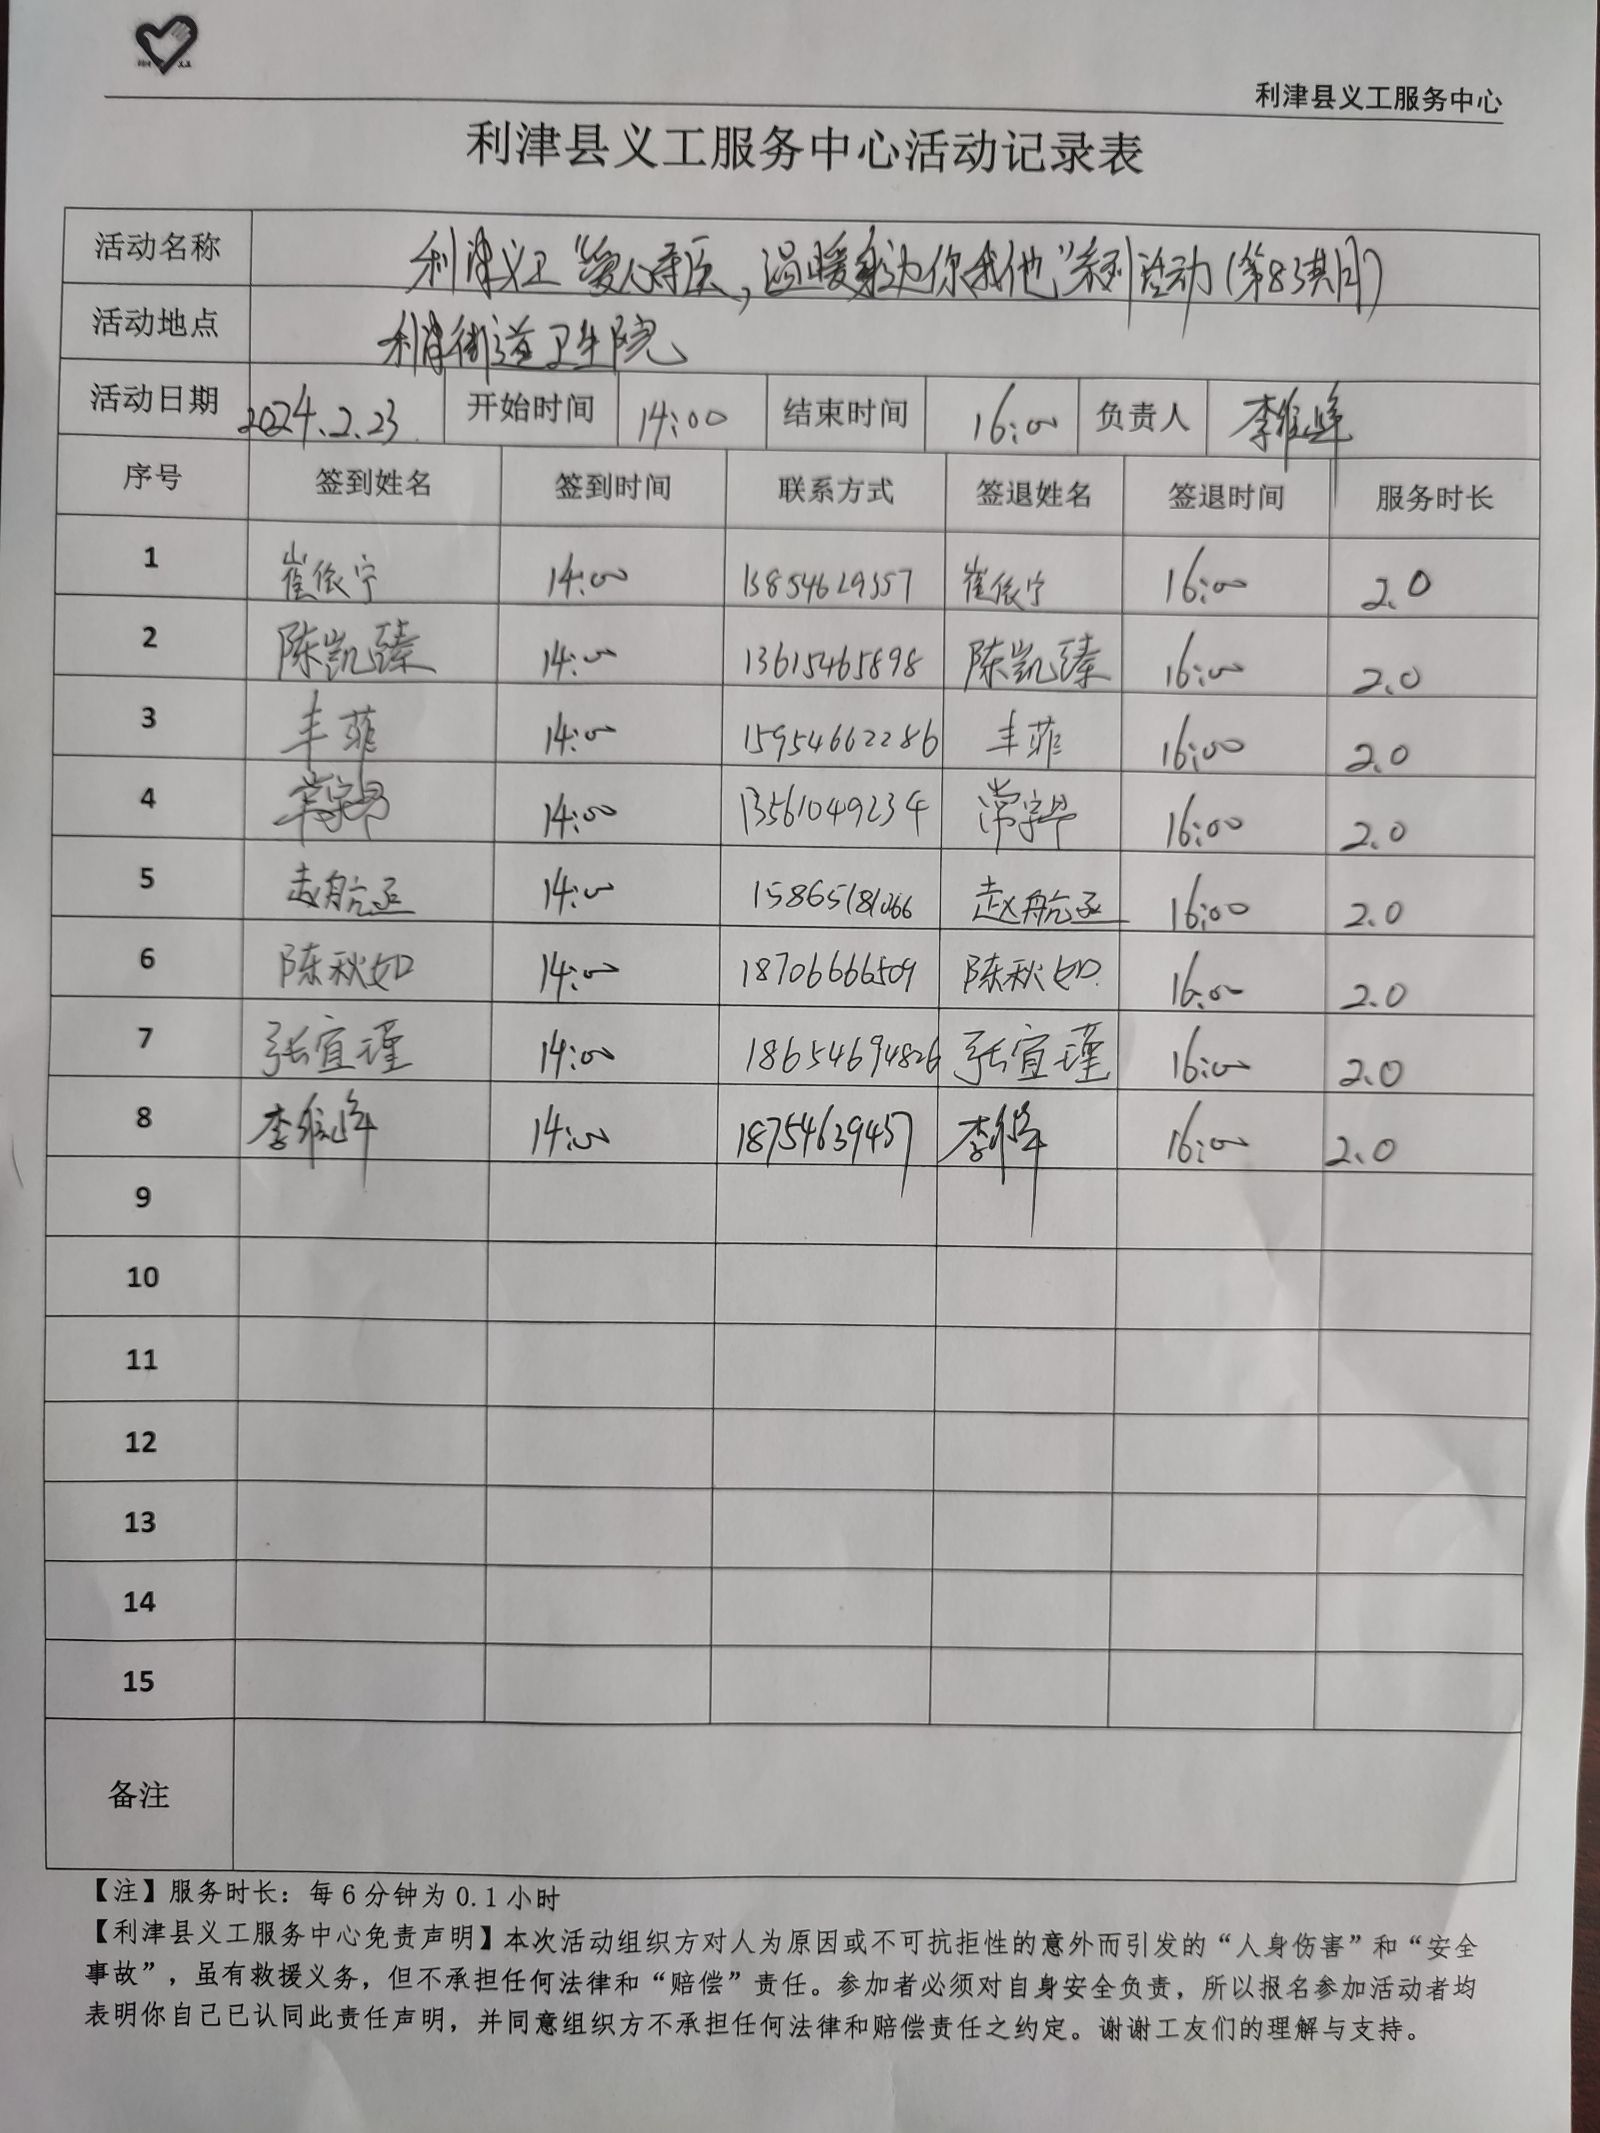 利津县义工服务中心
利津县义工服务中心活动记录表
活动名称 利津义工“爱心寻医，温暖 为你我他”系列活动（第83期）
活动地点 利津街道卫生院
活动日期 2024.2.23 开始时间 14:00 结束时间 16:00 负责人 李维峰
序号 签到姓名 签到时间 联系方式 签退姓名 签退时间 服务时长
1 崔依宁 14:00 13854629357 崔依宁 16:00 2.0
2 陈凯臻 14:00 13615465898 陈凯臻 16:00 2.0
3 丰菲 14:00 15954662286 丰菲 16:00 2.0
4 14:00 13561049234 16:00 2.0
5 赵航 14:00 赵航 16:00 2.0
6 陈秋如 14:00 18706666509 陈秋如 16:00 2.0
7 张宜瑾 14:00 18654694826 张宜瑾 16:00 2.0
8 李维峰 14:00 18754639457 李维峰 16:00 2.0
9
10
11
12
13
14
15
备注
【注】服务时长：每6分钟为0.1小时
【利津县义工服务中心免责声明】本次活动组织方对人为原因或不可抗拒性的意外而引发的“人身伤害”和“安全
事故”，虽有救援义务，但不承担任何法律和“赔偿”责任。参加者必须对自身安全负责，所以报名参加活动者均
表明你自己已认同此责任声明，并同意组织方不承担任何法律和赔偿责任之约定。谢谢工友们的理解与支持。